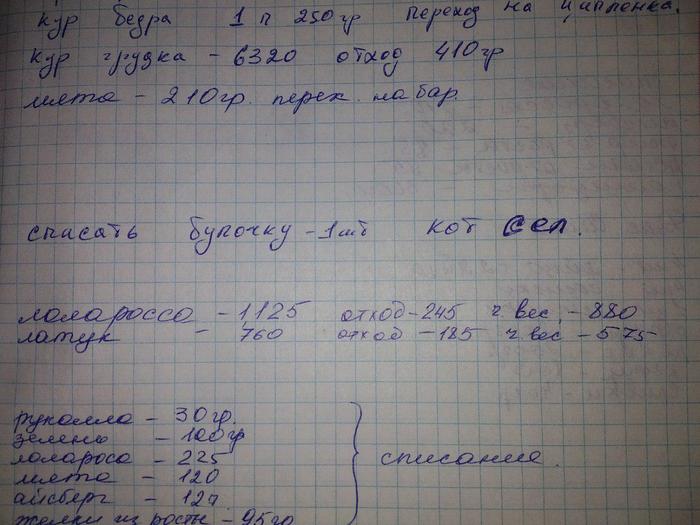 кур бедра 1 п 250гр переход на циплёнка.
кур грудка - 6320 отход 410гр
мята - 210гр. перех. на бар.
списать булочку - 1шт кот сел.
лоллароссо - 1125 отход - 245 ч вес. - 880
латук - 760 отход - 185 ч вес - 575
руколла - 30гр.
зелень - 100гр
лоллароса - 225
мята - 120
айсберг - 127
желки из рост - 95гр
списание.